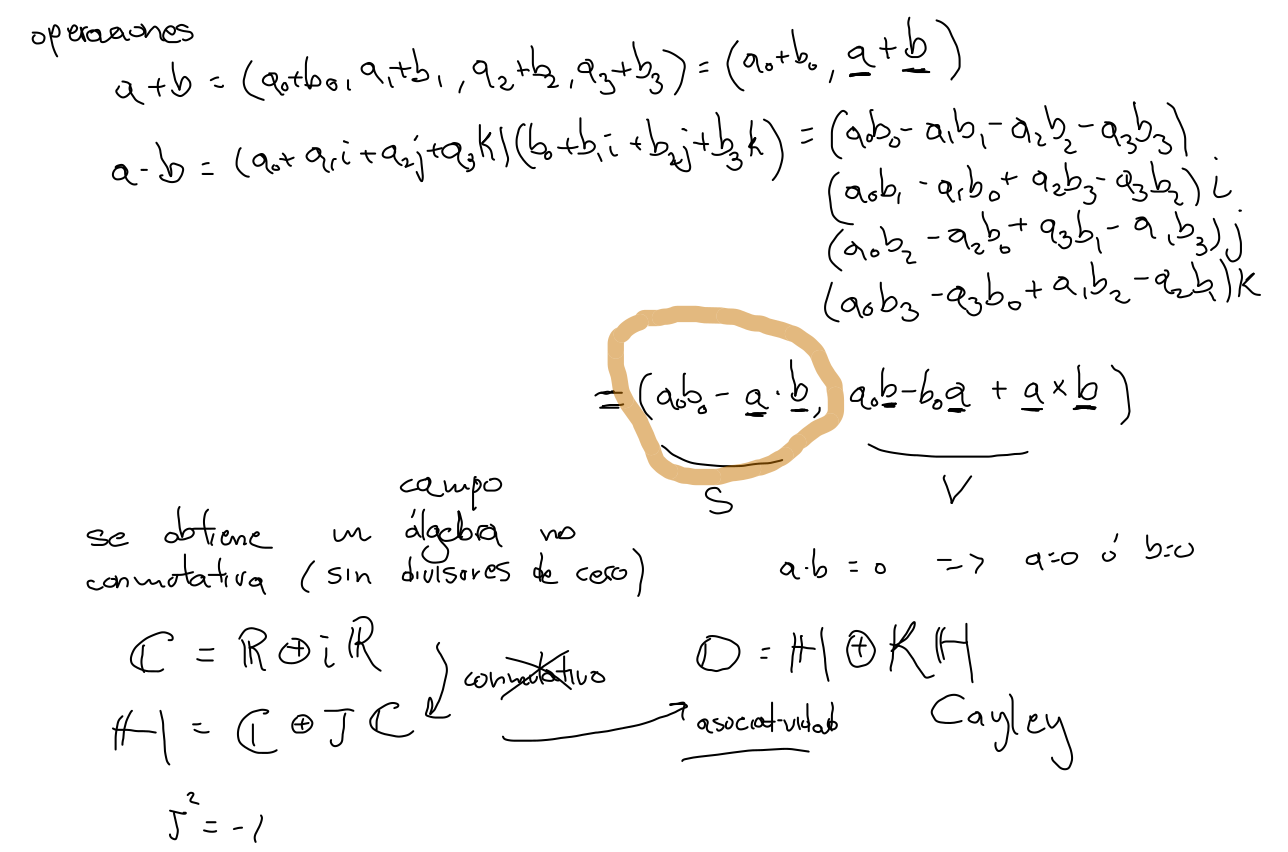 operaciones
a+b = (a₀+b₀, a₁+b₁, a₂+b₂, a₃+b₃) = (a₀+b₀, a̲+b̲)
a·b = (a₀+a₁i+a₂j+a₃k)(b₀+b₁i+b₂j+b₃k) = (a₀b₀-a₁b₁-a₂b₂-a₃b₃)
(a₀b₁-a₁b₀+a₂b₃-a₃b₂)i
(a₀b₂-a₂b₀+a₃b₁-a₁b₃)j
(a₀b₃-a₃b₀+a₁b₂-a₂b₁)k
= (a₀b₀-a̲·b̲, a₀b̲-b₀a̲ + a̲×b̲)
S V
campo
se obtiene un álgebra no
conmutativa (sin divisores de cero) a·b = 0 => a=0 ó b=0
ℂ = ℝ⊕iℝ
conmutativo
𝕆 = ℍ⊕Kℍ
ℍ = ℂ⊕Jℂ
asociatividad Cayley
J² = -1